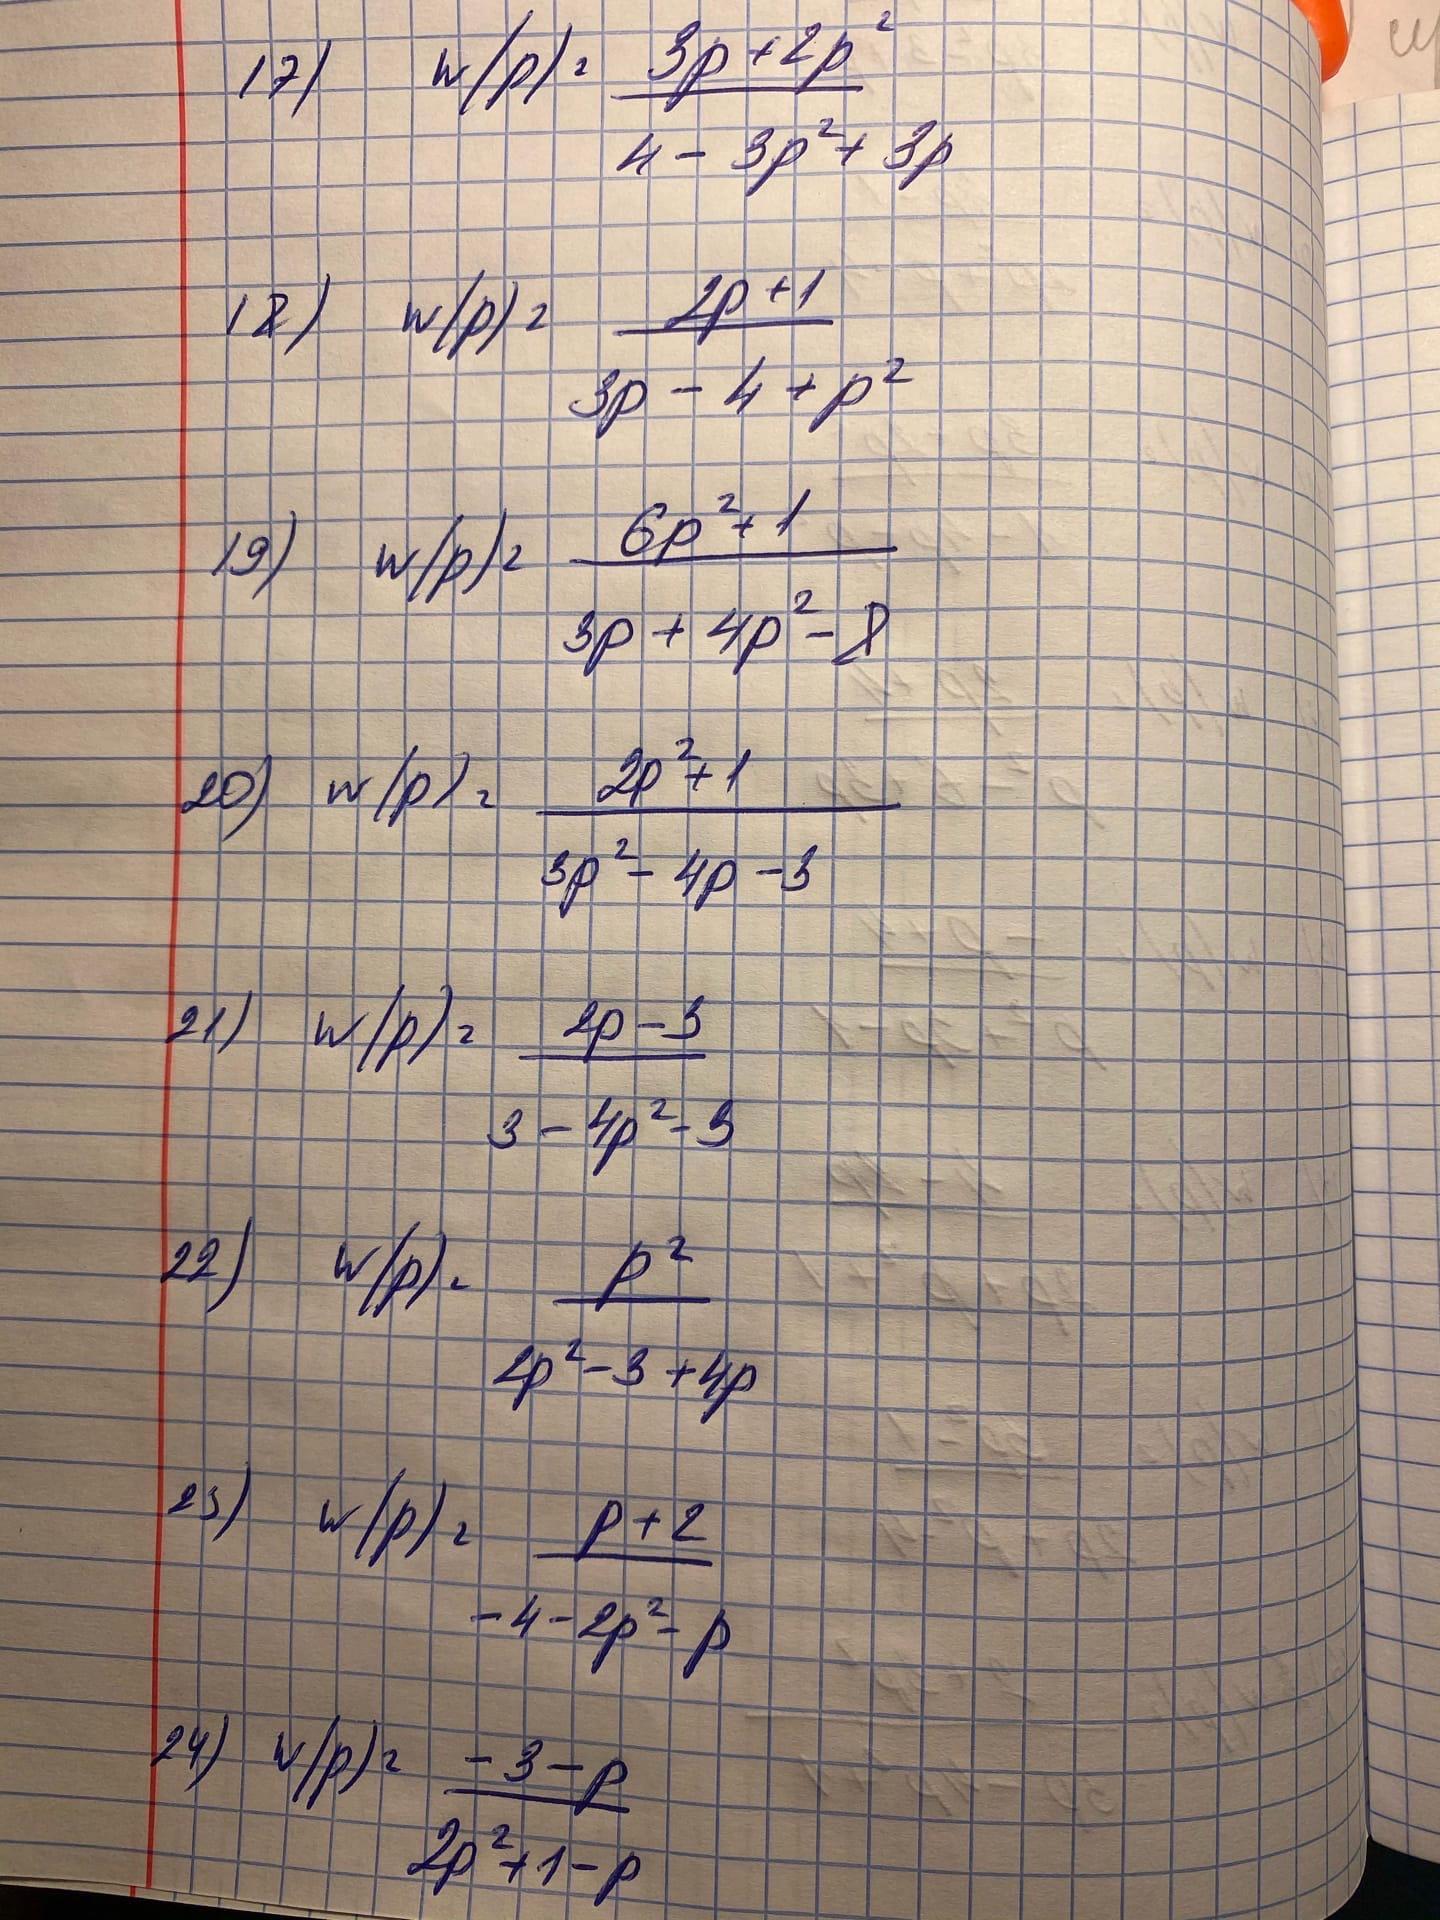 17) W(p) = 3p + 2p²
4 - 3p² + 3p
18) W(p) = 2p + 1
3p - 4 + p²
19) W(p) = 6p² + 1
3p + 4p² - 8
20) W(p) = 2p² + 1
3p² - 4p - 3
21) W(p) = 2p - 3
3 - 4p² - 3
22) W(p) = p²
2p² - 3 + 4p
23) W(p) = p + 2
-4 - 2p² - p
24) W(p) = -3 - p
2p² + 1 - p